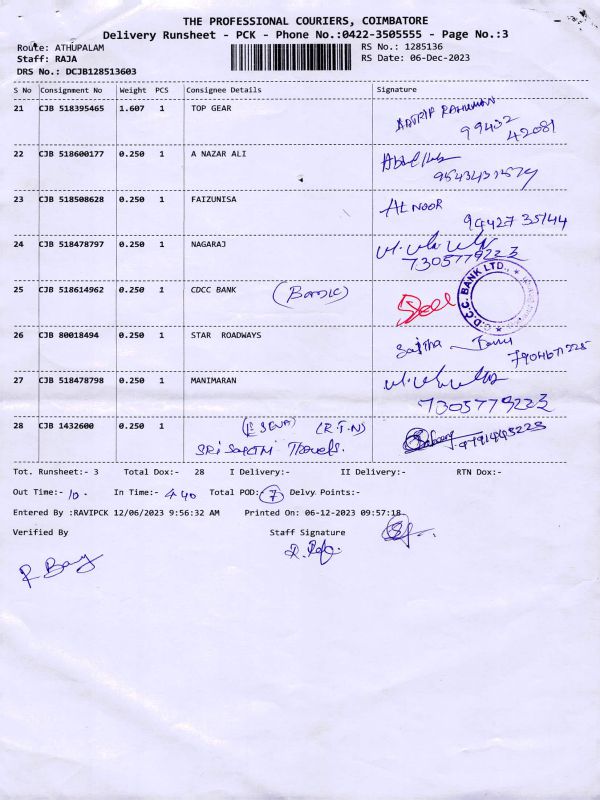 THE PROFESSIONAL COURIERS, COIMBATORE
Delivery Runsheet - PCK - Phone No.:0422-3505555 - Page No.:3
Route: ATHUPALAM RS No.: 1285136
Staff: RAJA RS Date: 06-Dec-2023
DRS No.: DCJB128513603
S No Consignment No Weight PCS Consignee Details Signature
21 CJB 518395465 1.607 1 TOP GEAR
99432
42081
22 CJB 518600177 0.250 1 A NAZAR ALI
23 CJB 518508628 0.250 1 FAIZUNISA AL NOOR
94427 35144
24 CJB 518478797 0.250 1 NAGARAJ
7305779223
25 CJB 518614962 0.250 1 CDCC BANK
C.D.C.C. BANK LTD.,
26 CJB 80018494 0.250 1 STAR ROADWAYS
27 CJB 518478798 0.250 1 MANIMARAN
7305779223
28 CJB 1432600 0.250 1 (R.T.N)
SRI SAKTHI Travels.
Tot. Runsheet:- 3 Total Dox:- 28 I Delivery:- II Delivery:- RTN Dox:-
Out Time:- 10. In Time:- 4.40 Total POD:- 7 Delvy Points:-
Entered By :RAVIPCK 12/06/2023 9:56:32 AM Printed On: 06-12-2023 09:57:18
Verified By Staff Signature